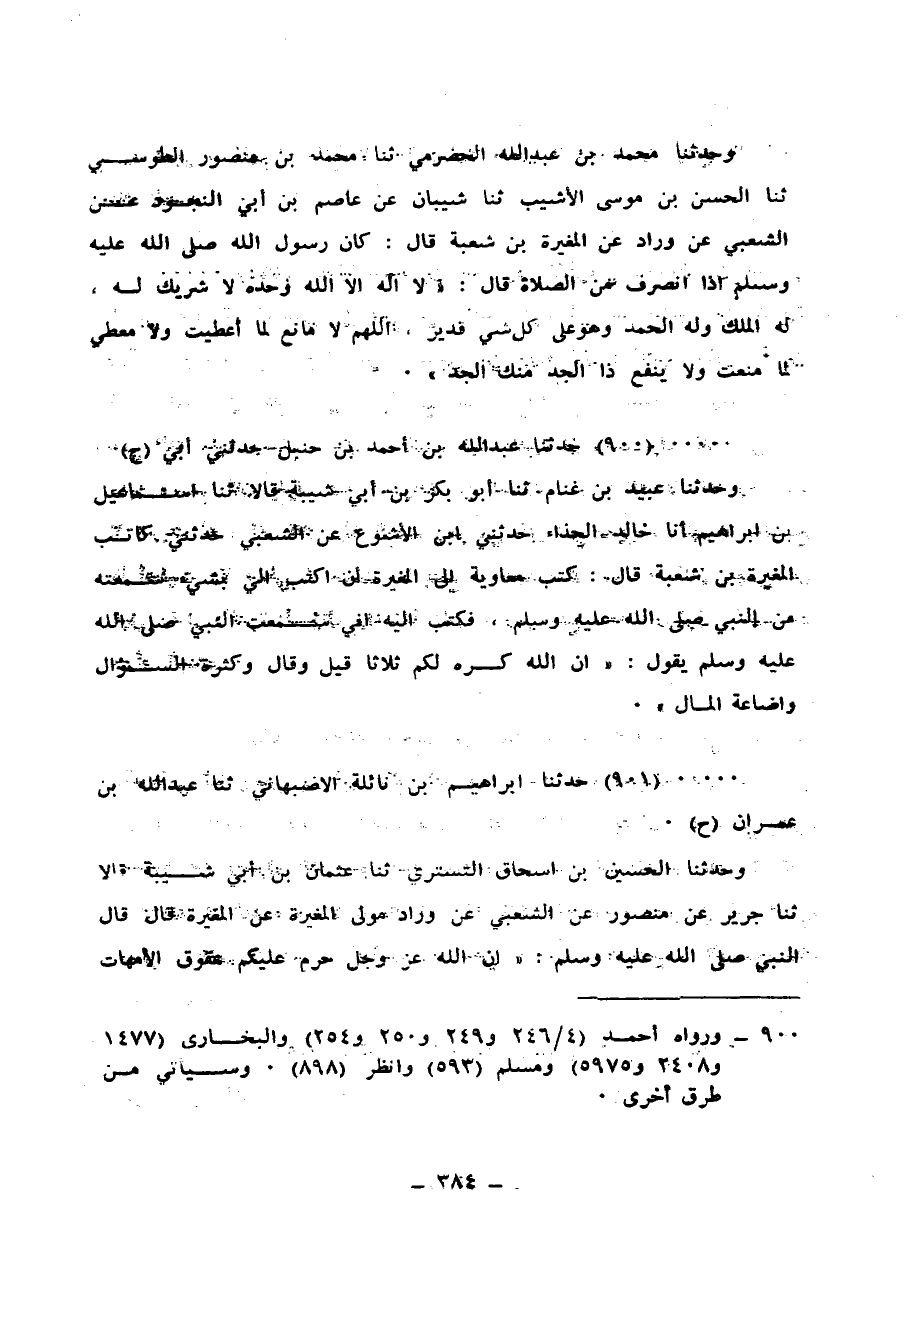 وحدثنا محمد بن عبدالله الحضرمي ثنا محمد بن منصور الطوســـي
ثنا الحسن بن موسى الأشيب ثنا شيبان عن عاصم بن أبي النجـــود عـــن
الشعبي عن وراد عن المغيرة بن شعبة قال : كان رسول الله صلى الله عليه
وسلم اذا انصرف عن الصلاة قال : « لا اله الا الله وحده لا شريك لــه ،
له الملك وله الحمد وهو على كل شي قدير ، اللهم لا مانع لما أعطيت ولا معطي
لما منعت ولا ينفع ذا الجد منك الجد » ٠
٠٠٠٠٠ (٩٠٠) حدثنا عبدالله بن أحمد بن حنبل حدثني أبي (ح)
وحدثنا عبيد بن غنام ثنا أبو بكر بن أبي شيبة قالا ثنا اســـماعيل
بن ابراهيم أنا خالد الحذاء حدثني ابن الأشوع عن الشعبي حدثني كاتب
المغيرة بن شعبة قال : كتب معاوية إلى المغيرة أن اكتب إلي بشيء سمعته
من النبي صلى الله عليه وسلم ، فكتب اليه اني سمعت النبي صلى الله
عليه وسلم يقول : « ان الله كـــره لكم ثلاثا قيل وقال وكثرة الســـؤال
واضاعة المــال » ٠
٠٠٠٠٠ (٩٠١) حدثنا ابراهيـــم بن نائلة الاصبهاني ثنا عبدالله بن
عمـــران (ح) ٠
وحدثنا الحسين بن اسحاق التستري ثنا عثمان بن أبي شـــيبة قالا
ثنا جرير عن منصور عن الشعبي عن وراد مولى المغيرة عن المغيرة قال قال
النبي صلى الله عليه وسلم : « إن الله عز وجل حرم عليكم عقوق الأمهات
٩٠٠ ــ ورواه أحمـــد (٢٤٦/٤ و٢٤٩ و٢٥٠ و٢٥٤) والبخـــارى (١٤٧٧
و٢٤٠٨ و٥٩٧٥) ومسلم (٥٩٣) وانظر (٨٩٨) ٠ وســـياتي مـــن
طرق أخرى ٠
ــ ٣٨٤ ــ